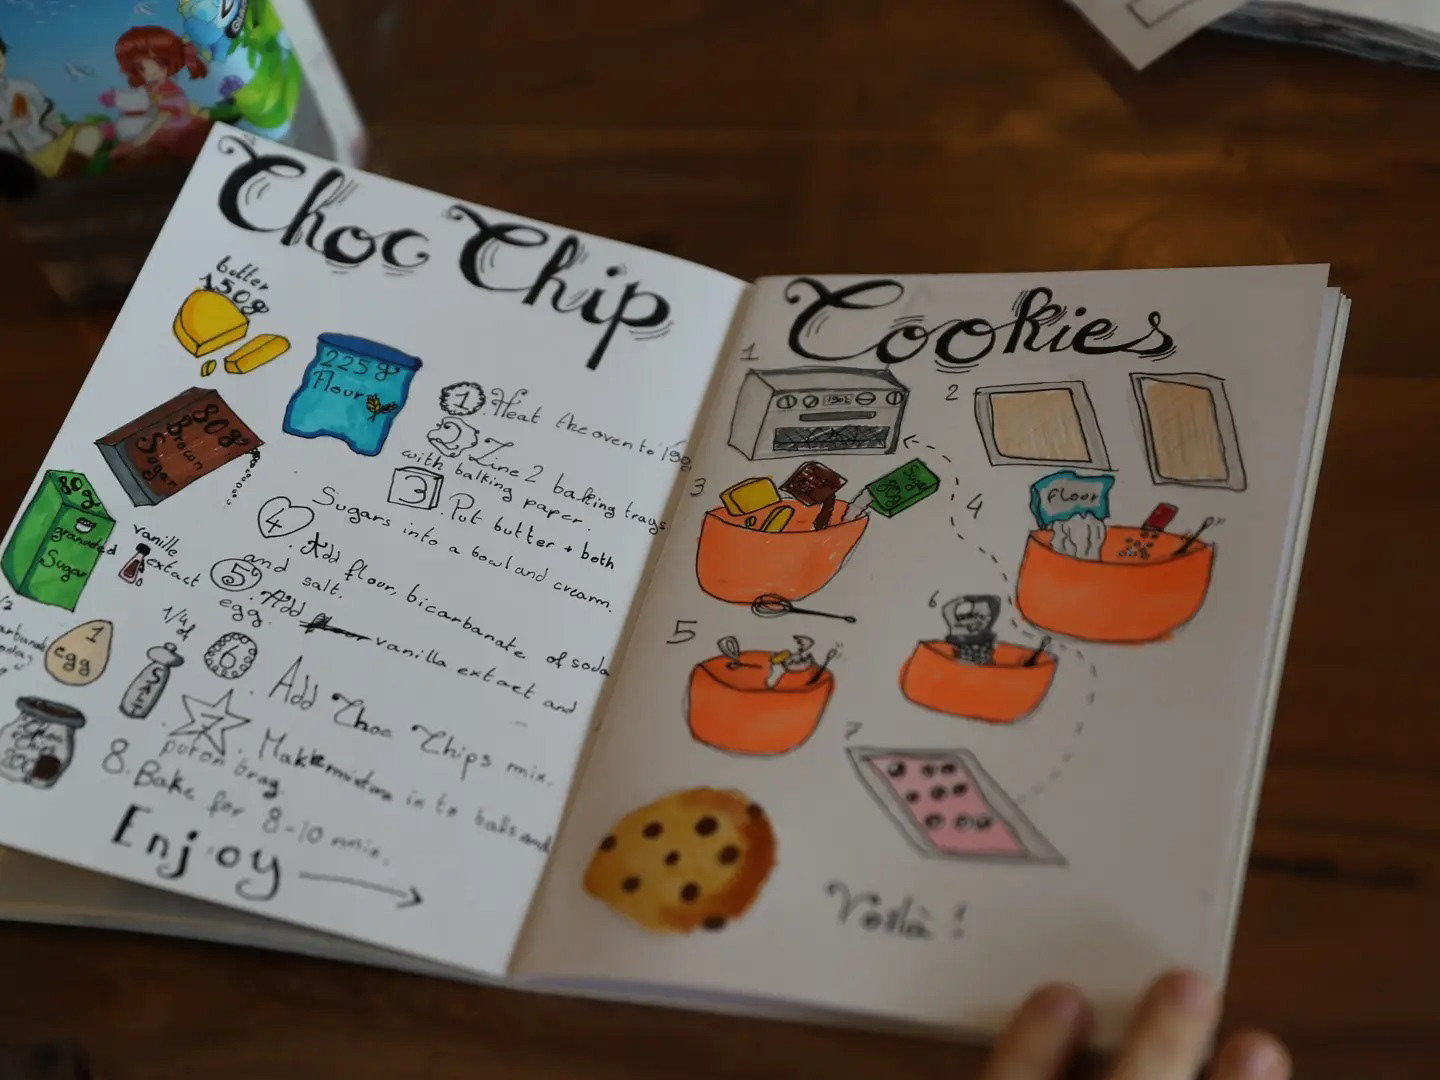 Choc Chip
butter
150g
225g
Flour
80g
Brown
Sugar
80g
Sugar
vanille
extract
1
egg
1/4
of
Salt
1. Heat the oven to 190
2. Line 2 baking trays
with balking paper.
3. Put butter + both
Sugars into a bowl and creamm.
4. Add flour, bicarbanate of soda
and salt.
5. Add vanilla extract and
egg.
6. Add Choc Chips mix.
7. Make mixture in to balls and
put on tray
8. Bake for 8-10 min.
Enjoy
Cookies
1
190°
2
3
Sugar
80g
4
floor
5
6
7
Voilà !